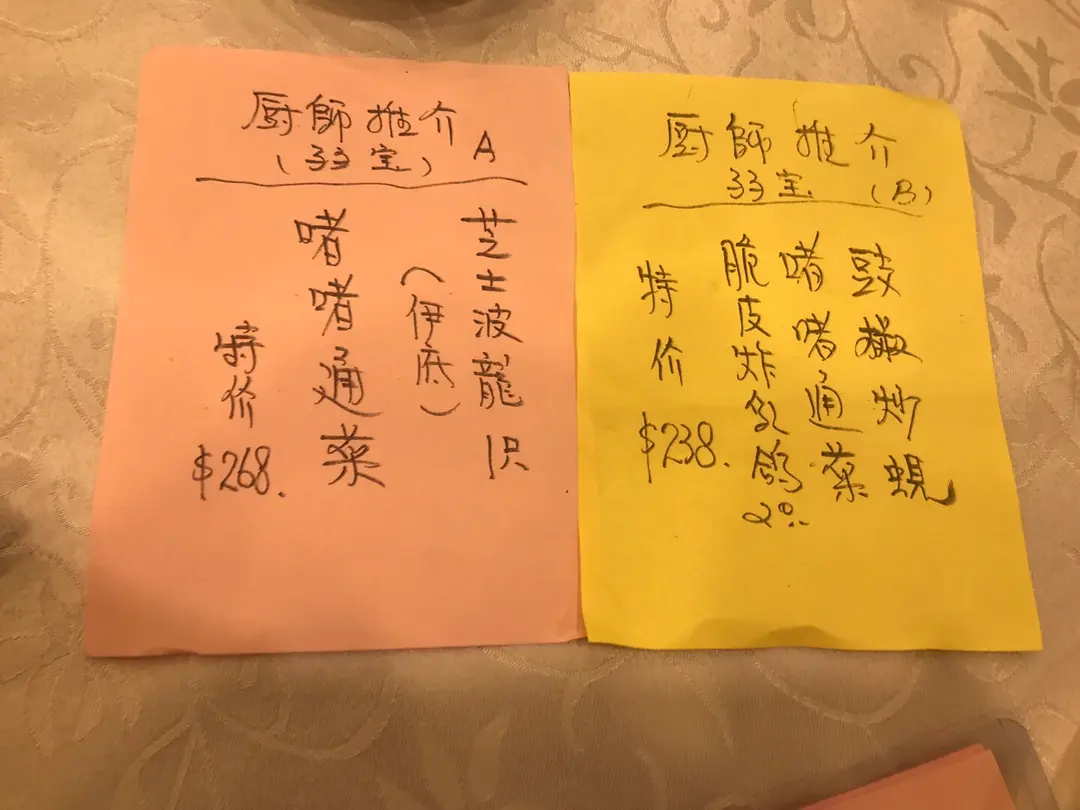 厨師推介
(孖宝) A
芝士波龍1只
(伊底)
啫啫通菜
特价$268.
厨師推介
孖宝 (B)
豉椒炒蜆
啫啫通菜
脆皮炸乳鸽2只
特价$238.